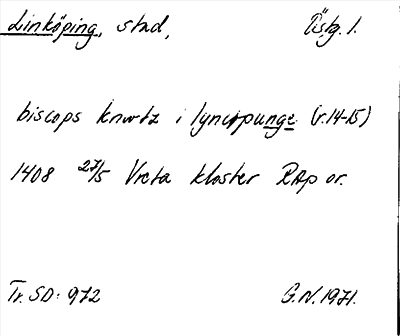 Linköping, stad, Östg. l.
biscops knwtz i lyncopunge (r. 14-15)
1408 27/5 Vreta kloster RAp or.
Tr. SD: 972 G.N. 1971.